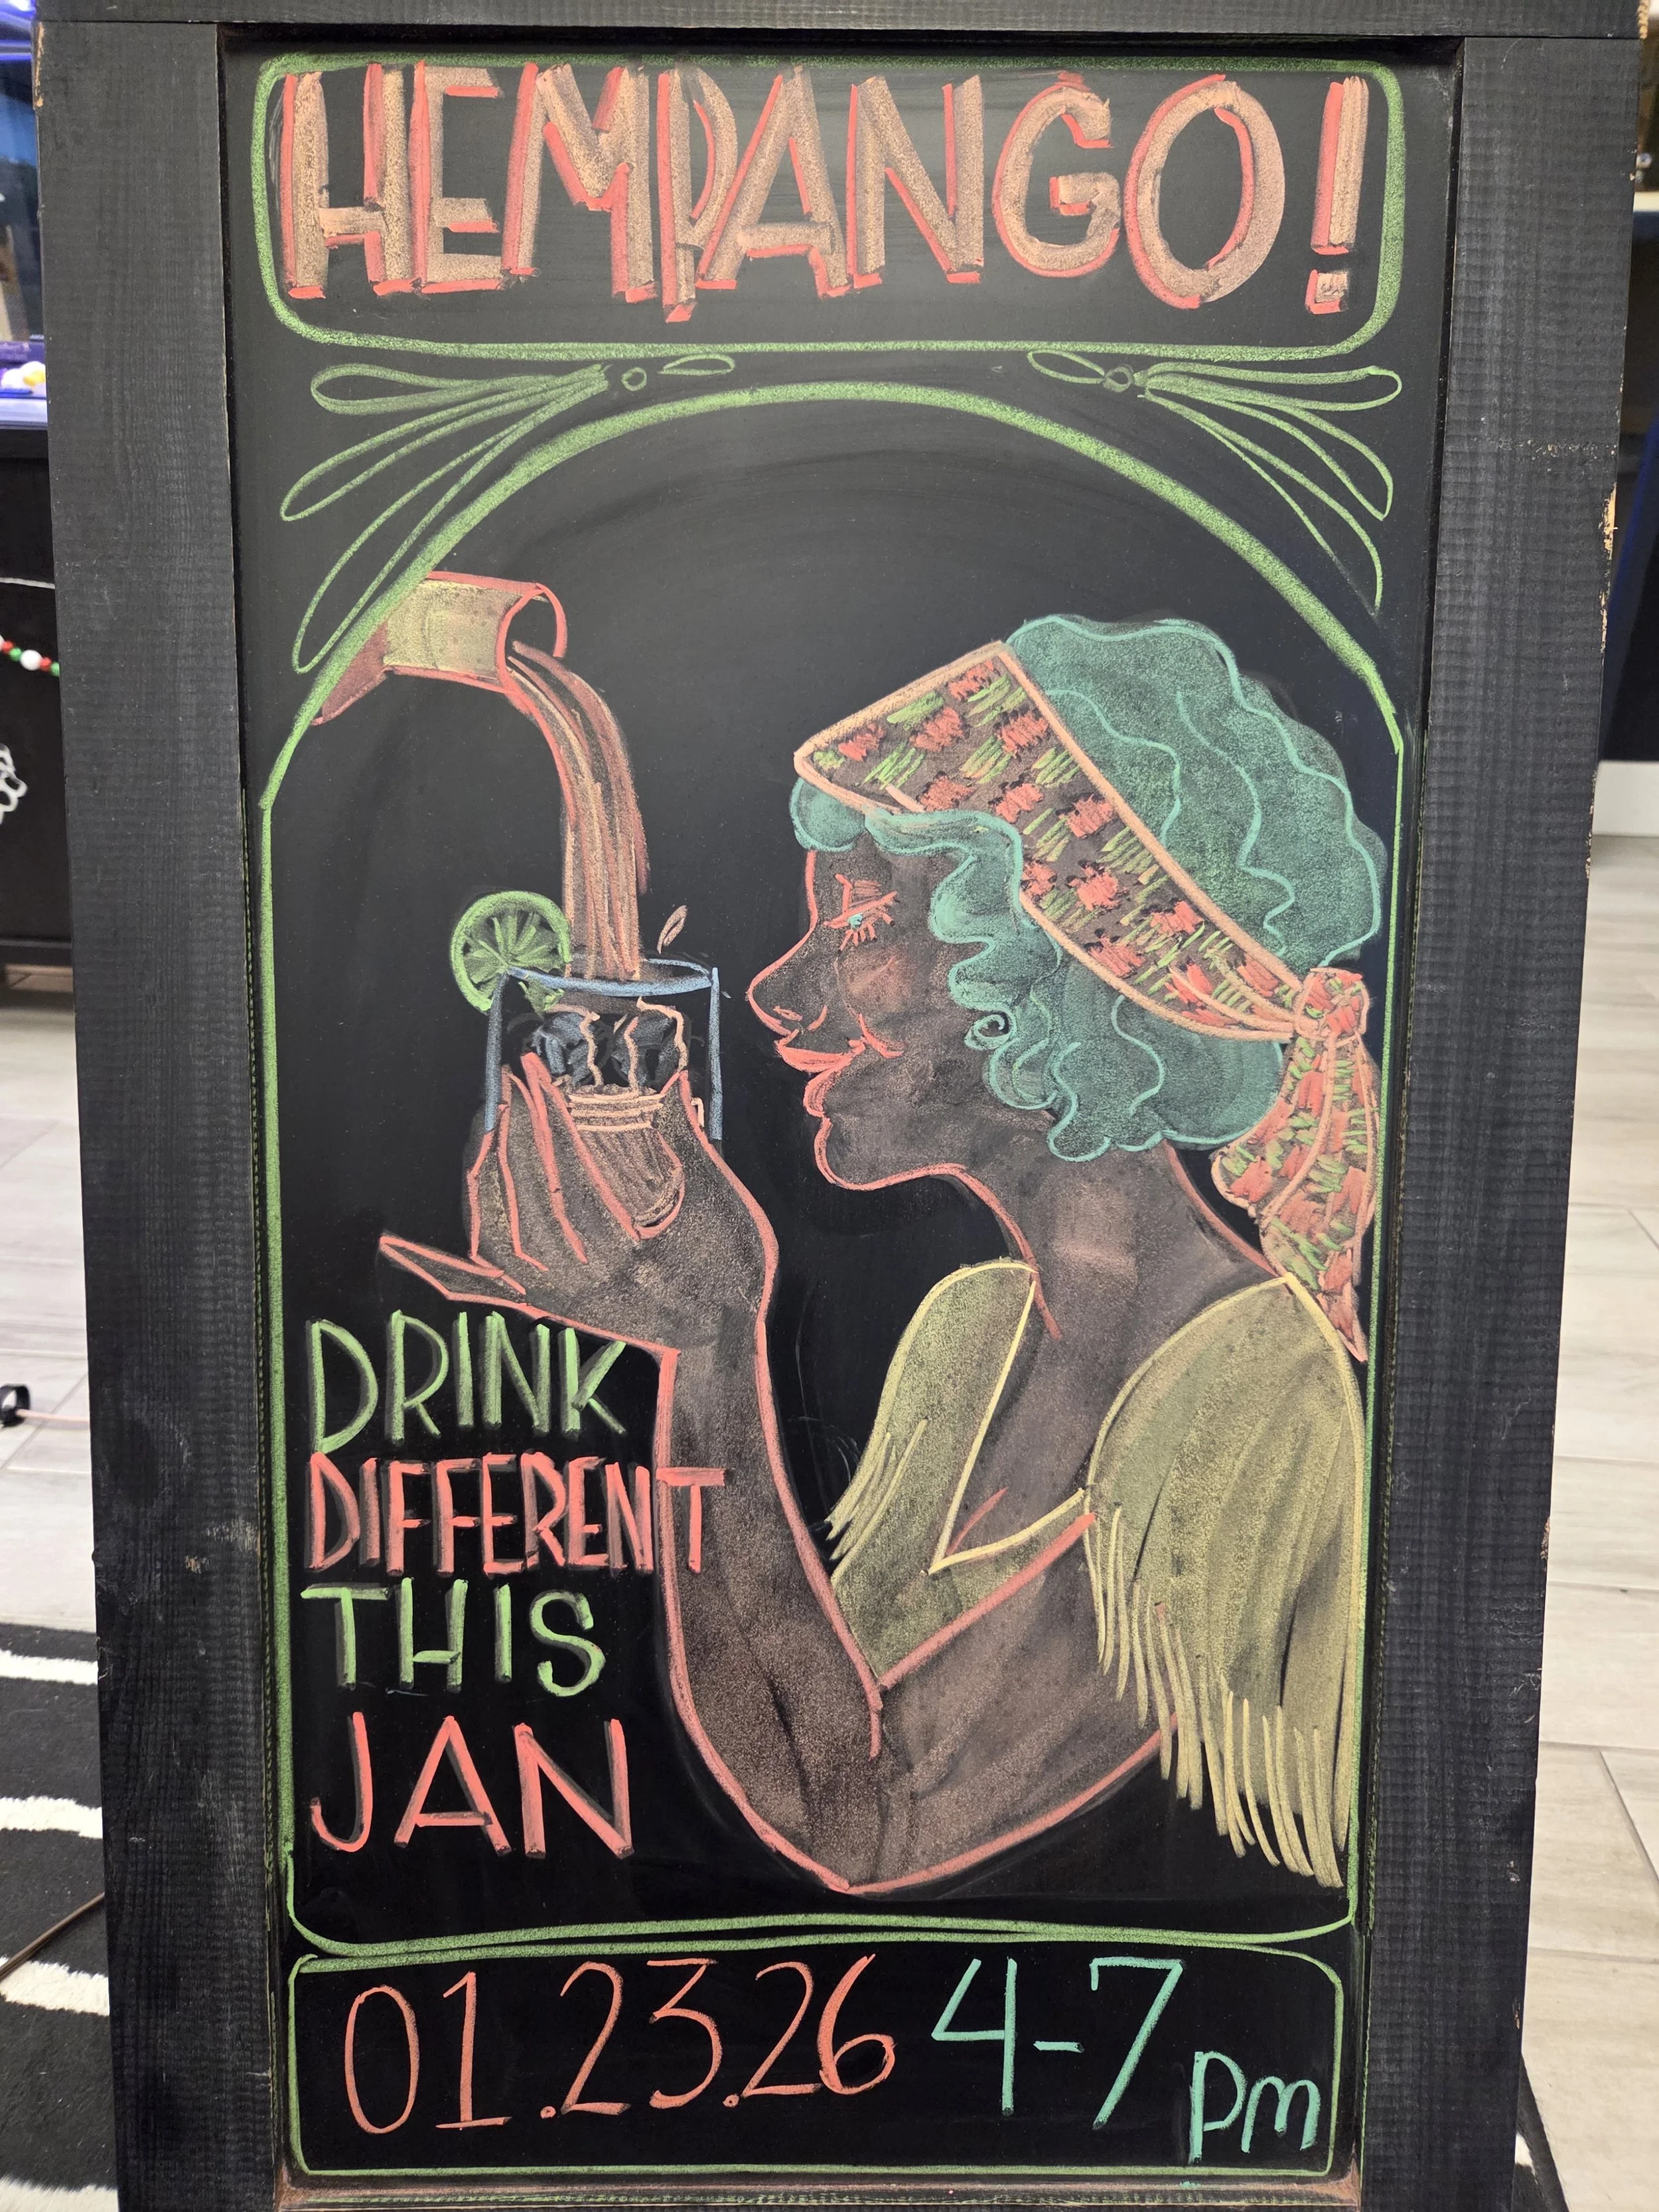 HEMPANGO!
DRINK
DIFFERENT
THIS
JAN
01.23.26 4-7 pm